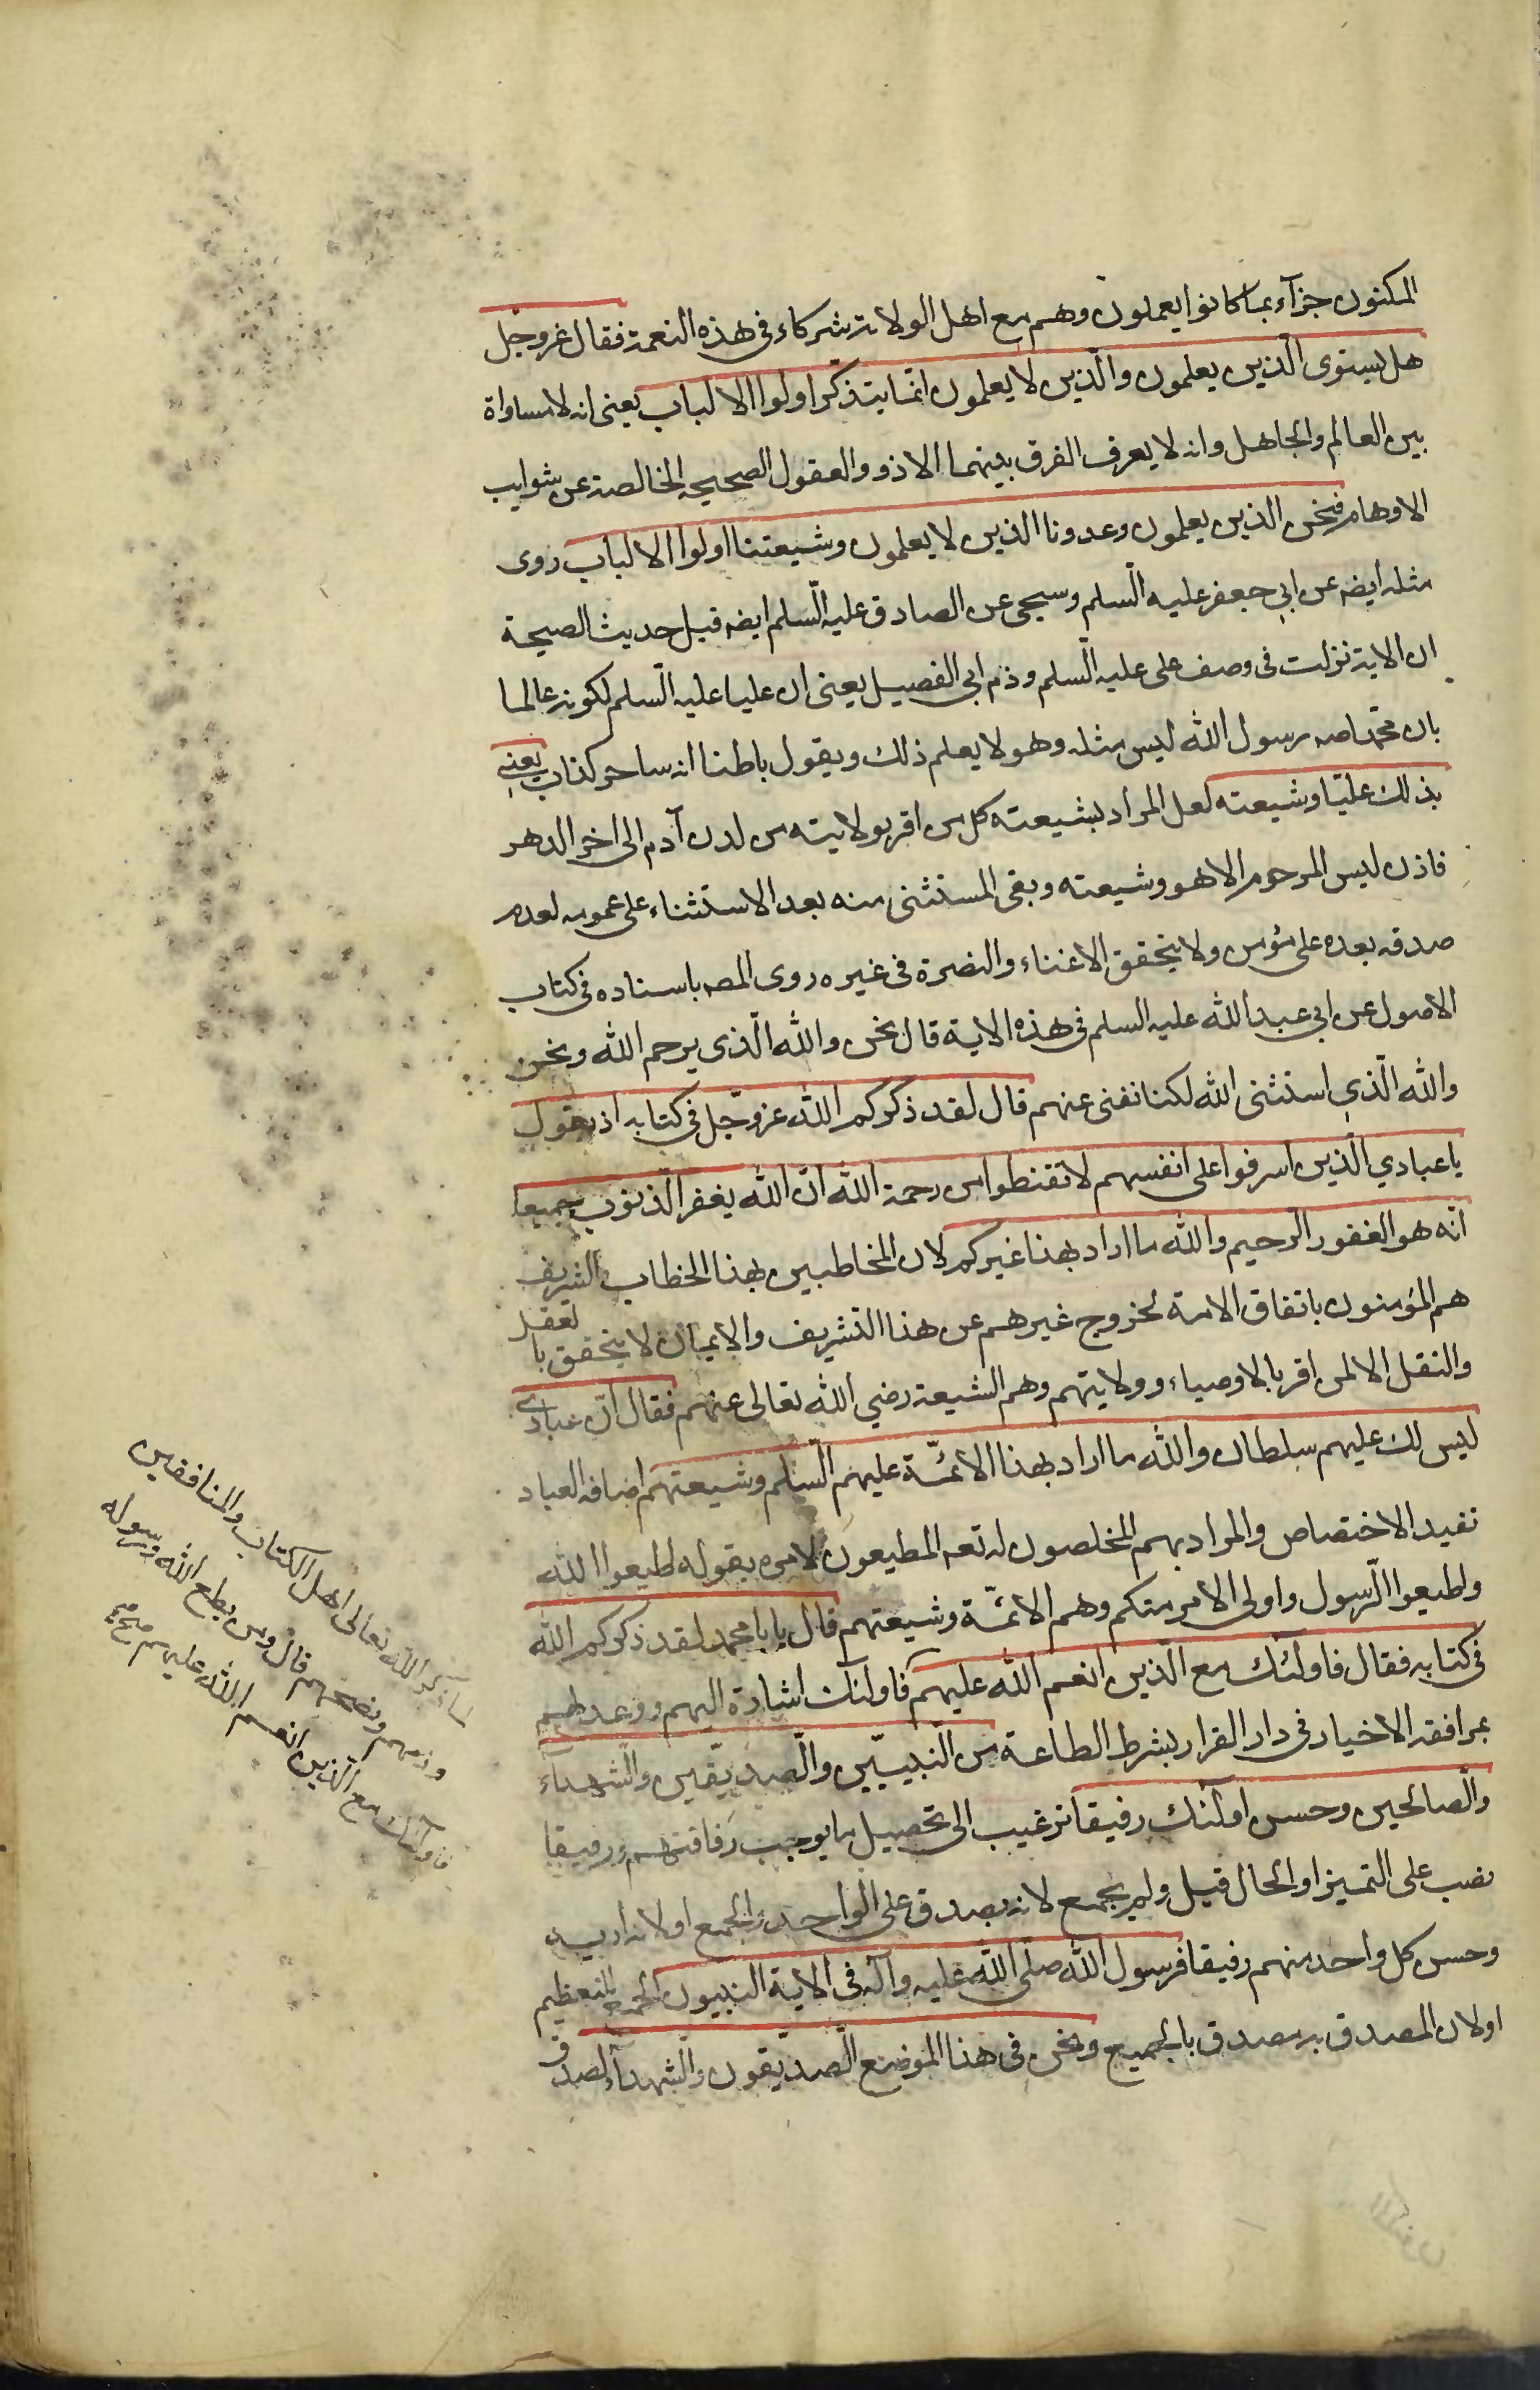 المكنون جزآء بما كانوا يعملون وهم مع اهل الولاية شركاء فى هذه النعمة فقال عز وجل
هل يستوى الّذين يعلمون والّذين لا يعلمون انّما يتذكّر اولوا الالباب يعنى انه لا مساواة
بين العالم والجاهل وانه لا يعرف الفرق بينهما الا ذوو العقول الصحيحه الخالصة عن شوايب
الاوهام فنحن الذين يعلمون وعدونا الذين لا يعلمون وشيعتنا اولوا الالباب روى
مثله ايضه عن ابي جعفر عليه السّلم وسيجى عن الصادق عليه السّلم ايضه قبل حديث الصيحة
ان الاية نزلت فى وصف على عليه السّلم وذم ابى الفصيل يعنى ان عليا عليه السّلم لكونه عالما
بان محمّدا صه رسول الله ليس مثله وهو لا يعلم ذلك ويقول باطنا انه ساحر كذاب يعنى
بذلك عليّا وشيعته لعل المراد بشيعته كل من اقر بولايته من لدن آدم الى اخر الدهر
فاذن ليس المرحوم الا هو وشيعته وبقى المستثنى منه بعد الاستثناء على عمومه لعدم
صدقه بعده على مؤمن ولا يتحقق الاغناء والنصرة فى غيره روى المصه باسناده فى كتاب
الاصول عن ابي عبد الله عليه السلم فى هذه الاية قال نحن والله الّذى يرحم الله ونحن
والله الّذي استثنى الله لكنا نغنى عنهم قال لقد ذكركم الله عز وجّل فى كتابه اذ يقول
يا عبادي الّذين اسرفوا على انفسهم لا تقنطوا من رحمة الله انّ الله يغفر الّذنوب جميعا
انّه هو الغفور الرحيم والله ما اراد بهذا غيركم لان المخاطبين بهذا الخطاب الشريف
هم المؤمنون باتفاق الامة لخروج غيرهم عن هذا التشريف والايمان لا يتحقق بالعقل
والنقل الا لمن اقر بالاوصياء وولايتهم وهم الشيعة رضي الله تعالى عنهم فقال انّ عبادى
ليس لك عليهم سلطان والله ما اراد بهذا الا الائمّة عليهم السّلم وشيعتهم اضافه العباد
تفيد الاختصاص والمراد بهم المخلصون له تعه المطيعون لامره بقوله اطيعوا الله
واطيعوا الرّسول واولى الامر منكم وهم الائمّة وشيعتهم قال يابا محمد لقد ذكركم الله
فى كتابه فقال فاولئك مع الّذين انعم الله عليهم فاولئك اشارة اليهم ووعد لهم
بمرافقه الاخيار فى دار القرار بشرط الطاعة من النّبييّن والّصدّيقين والّشهدآء
والّصالحين وحسن اولئك رفيقا ترغيب الى تحصيل ما يوجب رفاقتهم ورفيقا
نصب على التميز او الحال قيل ولم يجمع لانه يصدق على الواحد والجمع او لانه اريد
وحسن كل واحد منهم رفيقا فرسول الله صلّى الله عليه وآله فى الاية النبيون الجمع للتعظيم
او لان المصدق به مصدق بالجميع ونحن فى هذا الموضع الّصدّيقون والّشهدآء لصدق
لما ذكر الله تعالى اهل الكتاب والمنافقين
وذمهم ونصحهم قال ومن يطع الله ورسوله
فاولئك مع الذين انعم الله عليهم